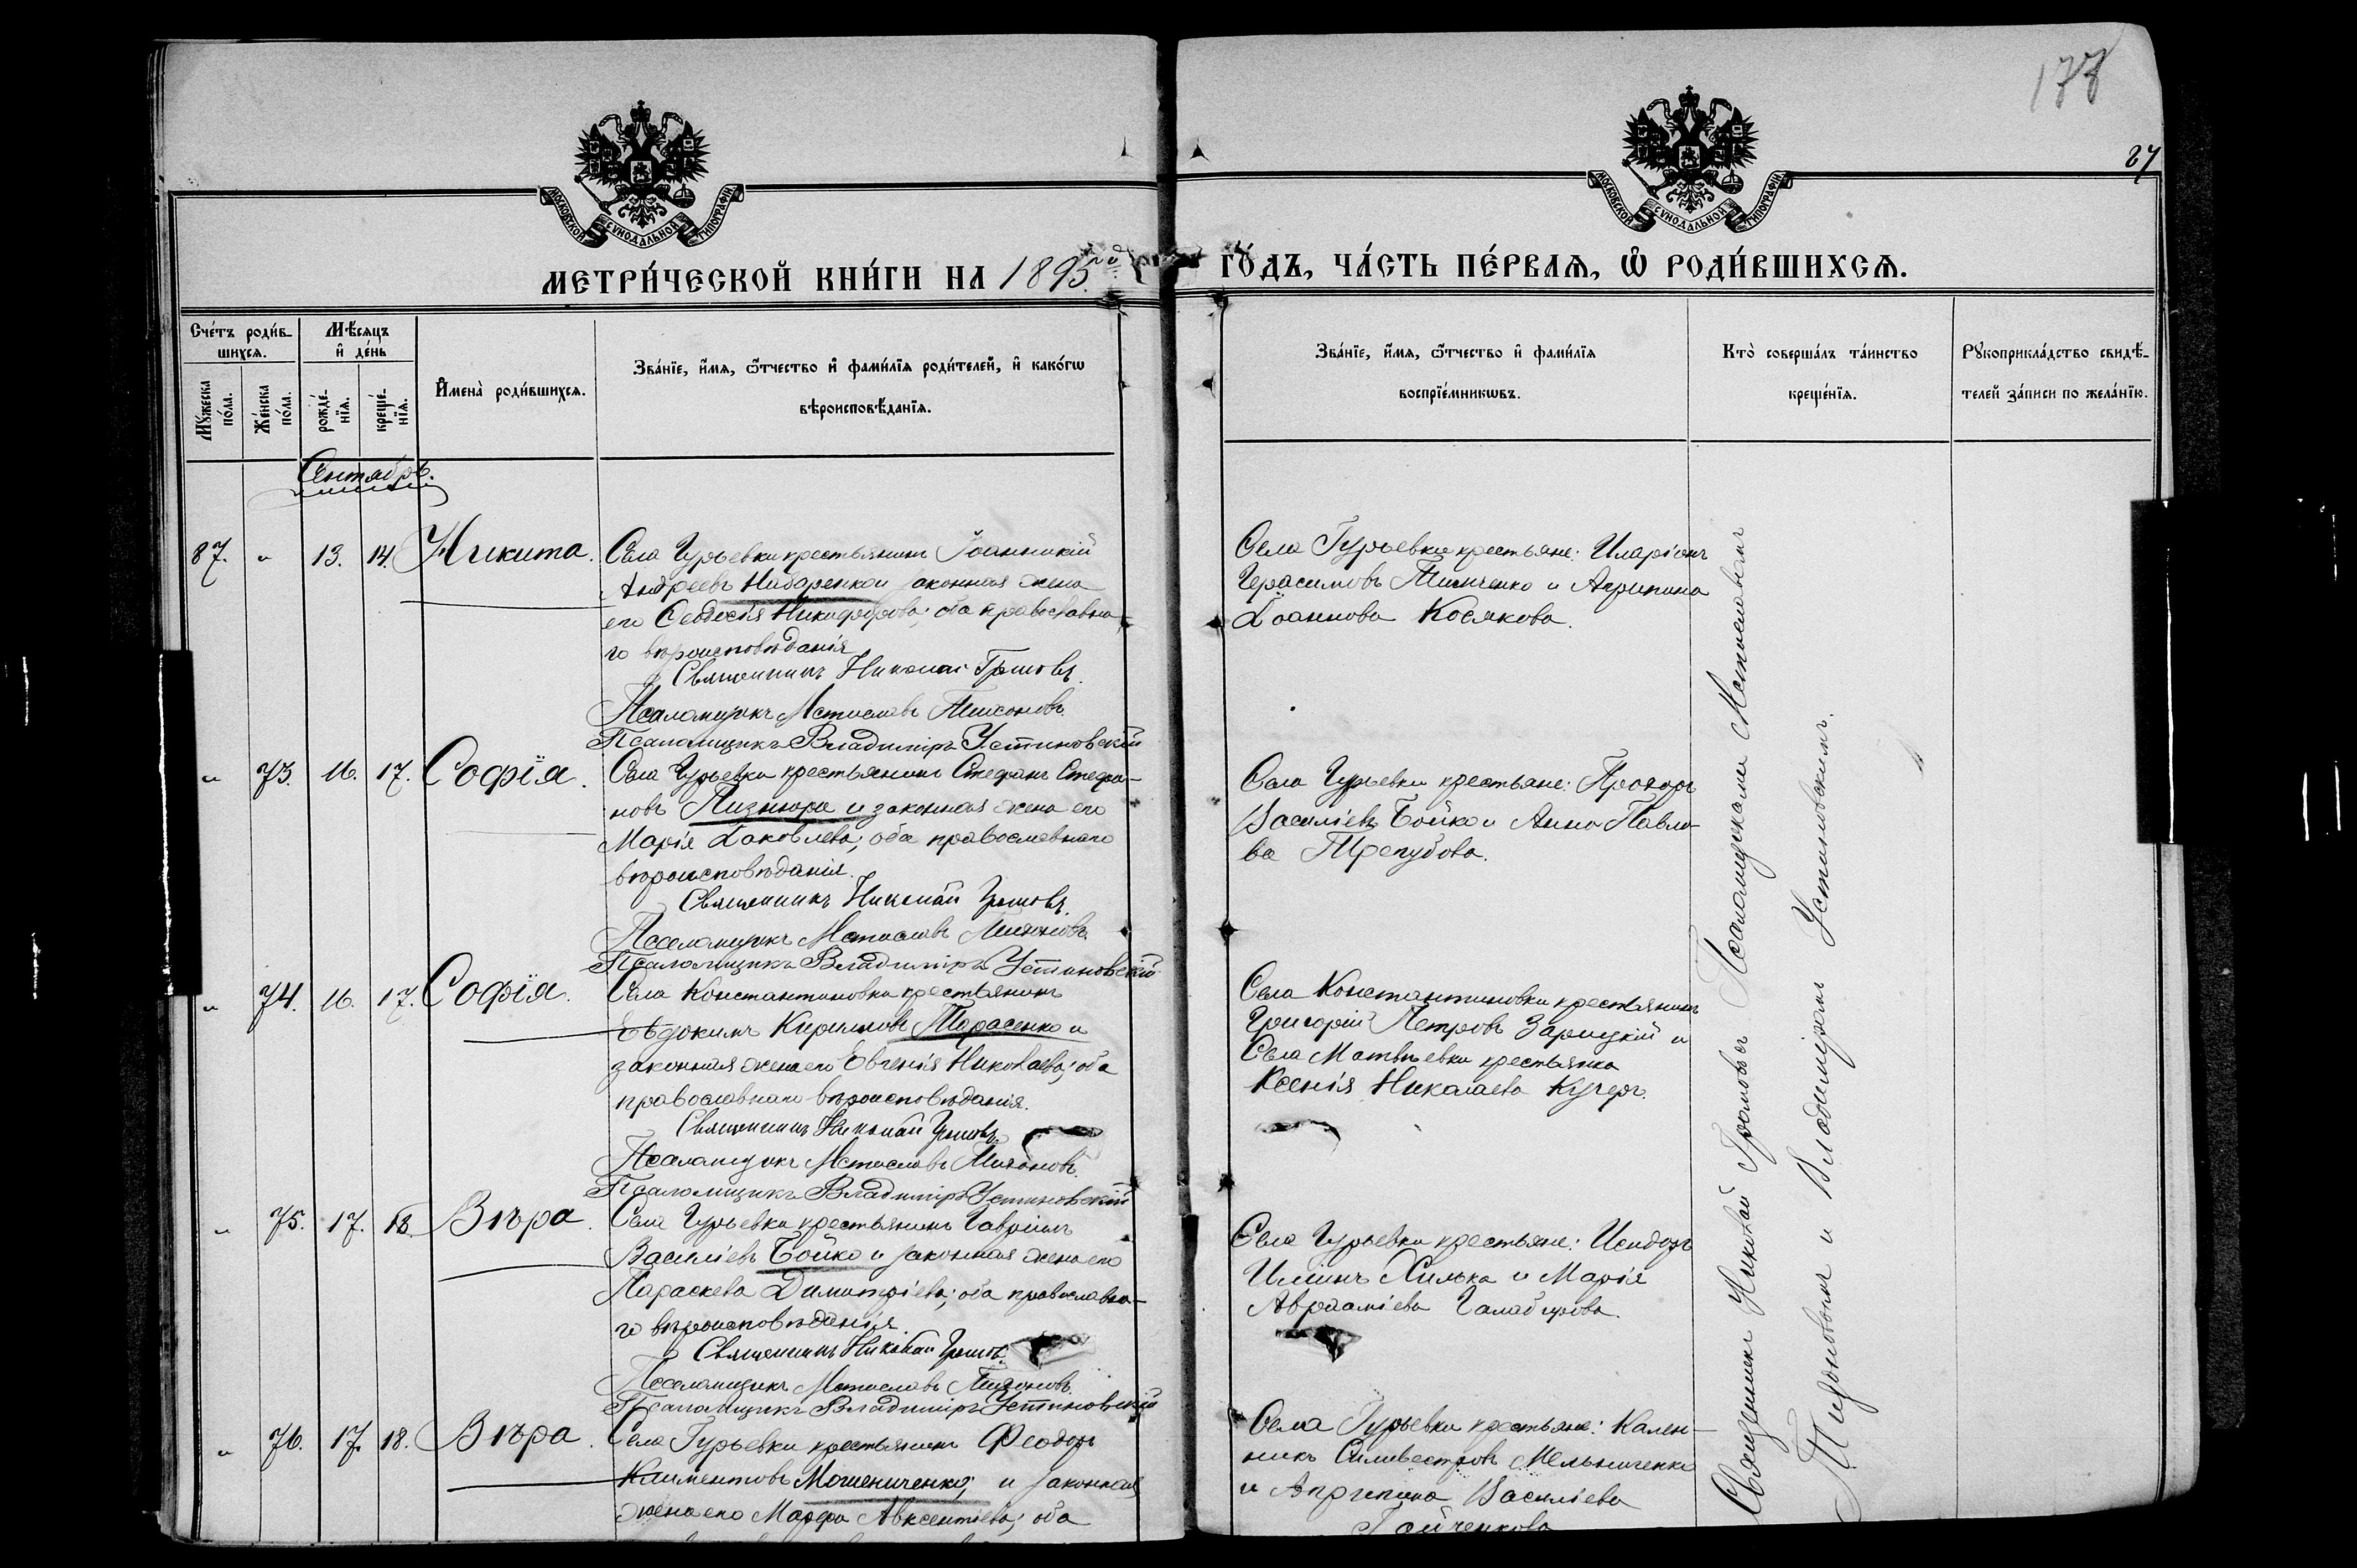 177
27
МОСКОВСКОЙ СѴНОДАЛЬНОЙ ТИПОГРАФІИ
МОСКОВСКОЙ СѴНОДАЛЬНОЙ ТИПОГРАФІИ
МЕТРИ́ЧЕСКОЙ КНИ́ГИ НА 1895
ГО́ДЪ, ЧА́СТЬ ПЕ́РВАѦ, Ѡ҆ РОДИ́ВШИХСѦ.
Сче́тъ роди́в-
шихсѧ.
Мꙋ́жеска по́ла.
Же́нска по́ла.
Мѣ́сѧцъ
и҆ де́нь
рожде́-
нїѧ.
креще́-
нїѧ.
И҆мена̀ роди́вшихсѧ.
Зва́нїе, и҆́мѧ, ѻ҆́тчество и҆ фами́лїѧ роди́телей, и҆ како́гѡ
вѣроисповѣ́данїѧ.
Зва́нїе, и҆́мѧ, ѻ҆́тчество и҆ фами́лїѧ
воспрїе́мникѡвъ.
Кто̀ соверша́лъ та́инство
креще́нїѧ.
Рꙋкоприкла́дство свидѣ́-
телей за́писи по жела́нїю.
Сентябрь.
87. " 13. 14. Никита. Села Гурьевки крестьянинъ Іоанникій
Андреевъ Набаренко и законная жена
его Ѳеодосія Никифорова; оба православна-
го вѣроисповѣданія
Священникъ Николай Громовъ.
Псаломщикъ Мстиславъ Тихоновъ.
Псаломщикъ Владиміръ Устиновскій
Села Гурьевки крестьяне: Иларіонъ
Герасимовъ Тимченко и Агрипина
Іоаннова Косякова.
" 73. 16. 17. Софія. Села Гурьевки крестьянинъ Стефанъ Стефа-
новъ Пизнюра и законная жена его
Марія Іаковлева; оба православнаго
вѣроисповѣданія.
Священникъ Николай Громовъ.
Псаломщикъ Мстиславъ Тихоновъ.
Псаломщикъ Владиміръ Устиновскій
Села Гурьевки крестьяне: Прохоръ
Василіевъ Бойко и Анна Павло-
ва Трегубова.
" 74. 16. 17. Софія. Села Константиновки крестьянинъ
Евдокимъ Кирилловъ Тарасенко и
законная жена его Евгенія Николаева; оба
православнаго вѣроисповѣданія.
Священникъ Николай Громовъ.
Псаломщикъ Мстиславъ Тихоновъ.
Псаломщикъ Владиміръ Устиновскій
Села Константиновки крестьянинъ
Григорій Петровъ Зарицкій и
Села Матвѣевки крестьянка
Ксенія Николаева Кучеръ.
" 75. 17. 18. Вѣра. Села Гурьевки крестьянинъ Гавріилъ
Василіевъ Бойко и законная жена его
Параскева Димитріева; оба православна-
го вѣроисповѣданія.
Священникъ Николай Громовъ.
Псаломщикъ Мстиславъ Тихоновъ.
Псаломщикъ Владиміръ Устиновскій
Села Гурьевки крестьяне: Исидоръ
Иліинъ Хилька и Марія
Авраамiева
" 76. 17. 18. Вѣра. Села Гурьевки крестьянинъ Ѳеодоръ
Климентовъ Мошениченко; и законная
жена его Марфа Авксентіева; оба
Села Гурьевки крестьяне: Кален-
никъ Сильвестровъ Мельниченко
и Агрипина Василіева
Священникъ Николай Громовъ съ Псаломщиками Мстиславомъ
Тихоновымъ и Владиміромъ Устиновскимъ.